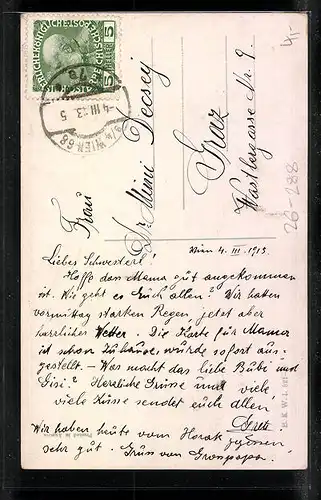 5
5
4 III 13 5
WIEN 68
4,-
26-288
Frau
Dr Mimi Decsey
Graz
Wastlergasse Nr. 9.
Wien 4. III. 1913.
Liebes Schwesterl!
Hoffe dass Mama gut angekommen
ist. Wie geht es Euch allen? Wir hatten
vormittag starken Regen, jetzt aber
herrliches Wetter. Die Karte für Mama
ist schon zuhause, wurde sofort aus-
gestellt. - Was macht das liebe Bubi und
Gisi? Herzliche Grüsse und viele,
viele Küsse sendet euch allen
Grete
Wir haben heute vom Horak gegessen
sehr gut. Gruss von Grosspapa.
B.K.W.I.